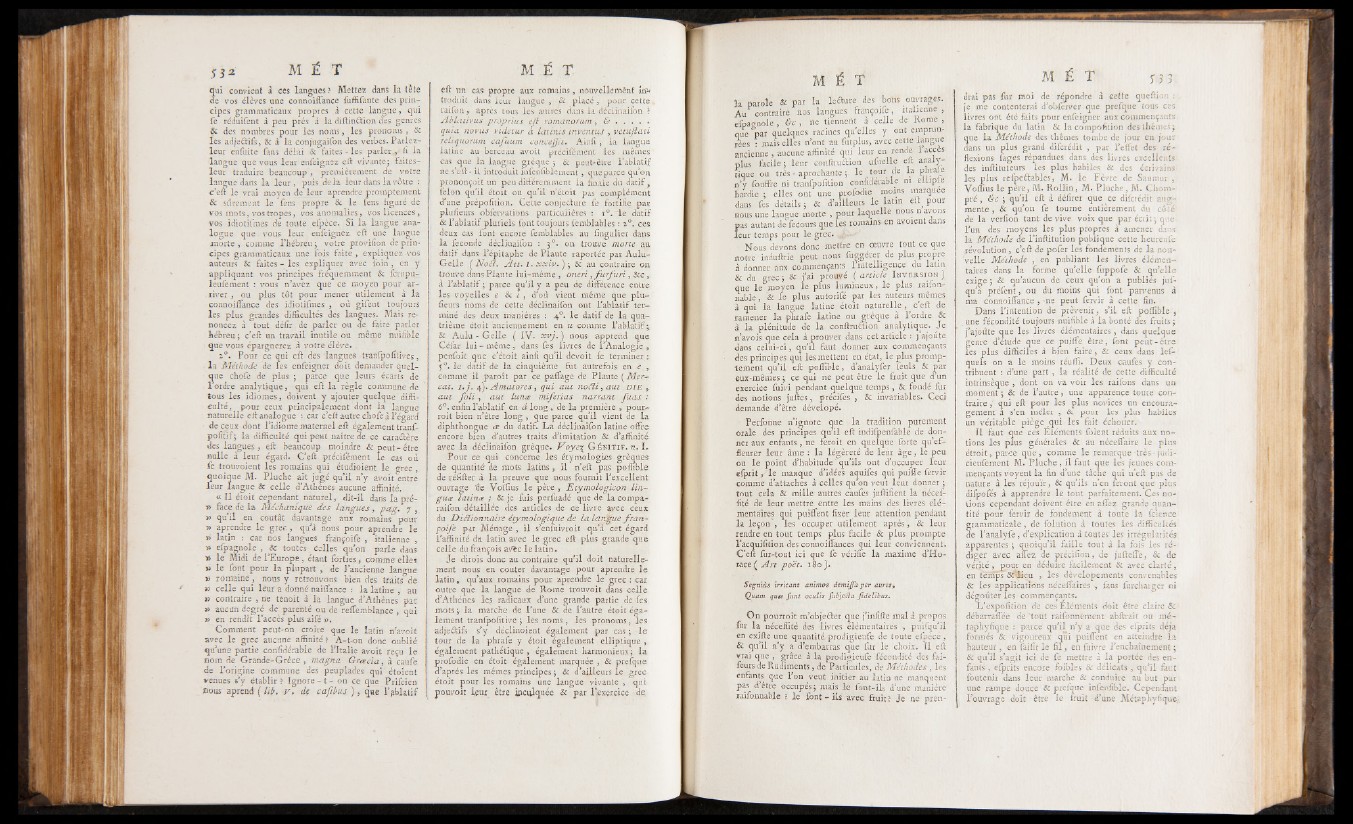 532 M É T
qui convient à ces langues? Mettez dans la tête
de vos élèves une connoissance suffisante des prin-
cipes grammaticaux propres à cette langue, qui
se réduisent à peu près à la distinction des genres
& des nombres pour les noms, les pronoms, &
les adjectifs, & à la conjugaison des verbes. Parlez-
leur ensuite sans délai & faites-les parler, si la
langue que vous leur enseignez est vivante; faites-
leur traduire beaucoup, premièrement de votre
langue dans la leur, puis de la leur dans la vôtre :
c'est le vrai moyen de leur aprendre promptement
& sûrement le sens propre & le sens figuré de
vos mots, vos tropes, vos anomalies, vos licences,
vos idiotismes de toute espèce. Si la langue ana-
logue que vous leur enseignez est une langue
morte, comme l'hébreu; votre provision de prin-
cipes grammaticaux une fois faite, expliquez vos
auteurs & faites-les expliquer avec soin, en y
appliquant vos principes fréquemment & scrupu-
leusement : vous n'avez que ce moyen pour ar-
river, ou plus tôt pour mener utilement à la
connoissance des idiotismes, où gisent toujours
les plus grandes difficultés des langues. Mais re-
noncez à tout désir de parler ou de faire parler
hébreu; c'est un travail inutile ou même nuisible
que vous épargnerez à votre élève.
2°. Pour ce qui est des langues transpositives,
la Méthode de les enseigner doit demander quel-
que chose de plus; parce que leurs écarts de
l'ordre analytique, qui est la règle commune de
tous les idiomes, doivent y ajouter quelque diffi-
culté, pour ceux principalement dont la langue
naturelle est analogue : car c'est autre chose à l'égard
de ceux dont l'idiome maternel est également trans-
positif; la difficulté qui peut naitre de ce caractère
des langues, est beaucoup moindre & peut-être
nulle à leur égard. C'est précisément le cas où
se trouvoient les romains qui étudioient le grec,
quoique M. Pluche ait jugé qu'il n'y avoit entre
leur langue & celle d'Athènes aucune affinité.
« Il étoit cependant naturel, dit-il dans la pré-
» face de la Méchanique des langues, pag. 7,
» qu'il en coutât davantage aux romains pour
» aprendre le grec, qu'à nous pour aprendre le
» latin : car nos langues françoise, italienne,
» espagnole, & toutes celles qu'on parle dans
» le Midi de l'Europe, étant sorties, comme elles
» le sont pour la plupart, de l'ancienne langue
» romaine; nous y retrouvons bien des traits de
» celle qui leur a donné naissance : la latine, au
» contraire, ne tenoit à la langue d'Athènes par
» aucun degré de parenté ou de ressemblance, qui
» en rendit l'accès plus aisé ».
Comment peut-on croire que le latin n'avoit
avec le grec aucune affinité? A-t-on donc oublié
qu'une partie considérable de l'Italie avoit reçu le
nom de Grande-Grèce, magna Græcia, à cause
de l'origine commune des peuplades qui étoient
venues s'y établir? Ignore-t-on ce que Priscien
nous aprend (lib. v. de casibus), que l'ablatif
M É T
est un cas propre aux romains, nouvellement in-
troduit dans leur langue, & placé, pour cette
raison, après tous les autres dans la déclinaison?
Ablativus proprius est romanorum, & . . . . .
quia novus videtur à latinis inventus, vetustati
reliquorum casuum concessit. Ainsi, la langue
latine au berceau avoit précisément les mêmes
cas que la langue grèque; & peut-être l'ablatif
ne s'est-il introduit insensiblement, que parce qu'on
prononçoit un peu différemment la finale du datif,
selon qu'il étoit ou qu'il n'étoit pas complément
d'une préposition. Cette conjecture se fortifie par
plusieurs observations particulières : 1°. le datif
& l'ablatif pluriels sont toujours semblables : 2°. ces
deux cas sont encore semblables au singulier dans
la seconde déclinaison : 3°. on trouve morte au
datif dans l'épitaphe de Plaute raportée par Aulu-
Gelle (Noct. Att. I. xxiv.); & au contraire on
trouve dans Plaute lui-même, oneri, furfuri, &c,
à l'ablatif; parce qu'il y a peu de différence entre
les voyelles e & i, d'où vient même que plu-
sieurs noms de cette déclinaison ont l'ablatif ter-
miné des deux manières : 4°. le datif de la qua-
trième étoit anciennement en u comme l'ablatif;
& Aulu-Gelle (IV. xvj.) nous apprend que
César lui-même, dans ses livres de l'Analogie,
pensoit que c'étoit ainsi qu'il devoit se terminer :
5°. le datif de la cinquième fut autrefois en e,
comme il paroît par ce passage de Plaute (Mer-
cat. I. j. 4). Amatores, qui aut nocti, aut DIE,
aut soli, aut lunæ miserias narrant suas :
6°. enfin l'ablatif en â long, de la première, pour-
roit bien n'être long, que parce qu'il vient de la
diphthongue æ du datif. La déclinaison latine offre
encore bien d'autres traits d'imitation & d'affinité
avec la déclinaison grèque. Voyez GÉNITIF. n. I.
Pour ce qui concerne les étymologies grèques
de quantité de mots latins, il n'est pas possible
de résister à la preuve que nous fournit l'excellent
ouvrage de Vossius le père, Etymologicon lin-
guæ latinæ; & je suis persuadé que de la compa-
raison détaillée des articles de ce livre avec ceux
du Dictionnaire étymologique de la langue fran-
çoise par Ménage, il s'ensuivroit qu'à cet égard
l'affinité du latin avec le grec est plus grande que
celle du françois avec le latin.
Je dirois donc au contraire qu'il doit naturelle-
ment nous en couter davantage pour aprendre le
latin, qu'aux romains pour aprendre le grec : car
outre que la langue de Rome trouvoit dans celle
d'Athènes les radicaux d'une grande partie de ses
mots; la marche de l'une & de l'autre étoit éga-
lement transpositive; les noms, les pronoms, les
adjectifs s'y déclinoient également par cas; le
tour de la phrase y étoit également elliptique,
également pathétique, également harmonieux; la
prosodie en étoit également marquée, & presque
d'après les mêmes principes; & d'ailleurs le grec
étoit pour les romains une langue vivante, qui
pouvoit leur être inculquée & par l'exercice de
M É T
la parole & par la lecture des bons ouvrages.
Au contraire nos langues françoise, italienne,
espagnole, &c, ne tiennent à celle de Rome,
que par quelques racines qu'elles y ont emprun-
tées : mais elles n'ont au surplus, avec cette langue
ancienne, aucune affinité qui leur en rende l'accès
plus facile; leur construction usuelle est analy-
tique ou très-aprochante; le tour de la phrase
n'y souffre ni transposition considérable ni ellipse
hardie; elles ont une prosodie moins marquée
dans ses détails; & d'ailleurs le latin est pour
nous une langue morte, pour laquelle nous n'avons
pas autant de secours que les romains en avoient dans
leur temps pour le grec.
Nous devons donc mettre en œuvre tout ce que
notre industrie peut nous suggérer de plus propre
à donner aux commençants l'intelligence du latin
& du grec; & j'ai prouvé (article INVERSION)
que le moyen le plus lumineux, le plus raison-
nable, & le plus autorisé par les auteurs mêmes
à qui la langue latine étoit naturelle, c'est de
ramener la phrase latine ou grèque à l'ordre &
à la plénitude de la construction analytique. Je
n'avois que cela à prouver dans cet article : j'ajoute
dans celui-ci, qu'il faut donner aux commençants
des principes qui les mettent en état, le plus promp-
tement qu'il est possible, d'analyser seuls & par
eux-mêmes; ce qui ne peut être le fruit que d'un
exercice suivi pendant quelque temps, & fondé sur
des notions justes, précises, & invariables. Ceci
demande d'être dévelopé.
Personne n'ignore que la tradition purement
orale des principes qu'il est indispensable de don-
ner aux enfants, ne feroit en quelque sorte qu'ef-
fleurer leur âme : la légèreté de leur âge, le peu
ou le point d'habitude qu'ils ont d'occuper leur
esprit, le manque d'idées aquises qui puisse servir
comme d'attaches à celles qu'on veut leur donner;
tout cela & mille autres causes justifient la néces-
sité de leur mettre entre les mains des livres élé-
mentaires qui puissent fixer leur attention pendant
la leçon, les occuper utilement après, & leur
rendre en tout temps plus facile & plus prompte
l'acquisition des connoissances qui leur conviennent.
C'est sur-tout ici que se vérifie la maxime d'Ho-
race (Art poët. 180).
Segniùs irritant animos demissa per aures,
Quam quæ sunt oculis subjecta fidelibus.
On pourroit m'objecter que j'insiste mal à propos
sur la nécessité des livres élémentaires, puisqu'il
en existe une quantité prodigieuse de toute espèce,
& qu'il n'y a d'embarras que sur le choix. Il est
vrai que, grâce à la prodigieuse fécondité des fai-
seurs de Rudiments, de Particules, de Méthodes, les
enfants que l'on veut initier au latin ne manquent
pas d'être occupés; mais le sont-ils d'une manière
raisonnable? le sont-ils avec fruit? Je ne pren-
M É T 533
drai pas sur moi de répondre à cette question :
je me contenterai d'observer que presque tous ces
livres ont été faits pour enseigner aux commençants
la fabrique du latin & la composition des thèmes;
que la Méthode des thèmes tombe de jour en jour
dans un plus grand discrédit, par l'effet des ré-
flexions sages répandues dans des livres excellents
des instituteurs les plus habiles & des écrivains
les plus respectables, M. le Fèvre de Saumur,
Vossius le père, M. Rollin, M. Pluche, M. Chom-
pré, &c; qu'il est à désirer que ce discrédit aug-
mente, & qu'on se tourne entièrement du côté
de la version tant de vive voix que par écrit; que
l'un des moyens les plus propres à amener dans
la Méthode de l'institution publique cette heureuse
révolution, c'est de poser les fondements de la nou-
velle Méthode, en publiant les livres élémen-
taires dans la forme qu'elle suppose & qu'elle
exige; & qu'aucun de ceux qu'on a publiés jus-
qu'à présent, ou du moins qui sont parvenus à
ma connoissance, ne peut servir à cette fin.
Dans l'intention de prévenir, s'il est possible,
une fécondité toujours nuisible à la bonté des fruits;
j'ajoûte que les livres élémentaires, dans quelque
genre d'étude que ce puisse être, sont peut-être
les plus difficiles à bien faire, & ceux dans les-
quels on a le moins réussi. Deux causes y con-
tribuent : d'une part, la réalité de cette difficulté
intrinsèque, dont on va voir les raisons dans un
moment; & de l'autre, une apparence toute con-
traire, qui est pour les plus novices un encoura-
gement à s'en mêler, & pour les plus habiles
un véritable piège qui les fait échouer.
Il faut que ces Éléments soient réduits aux no-
tions les plus générales & au nécessaire le plus
étroit, parce que, comme le remarque très-judi-
cieusement M. Pluche, il faut que les jeunes com-
mençants voyent la fin d'une tâche qui n'est pas de
nature à les réjouir, & qu'ils n'en seront que plus
disposés à apprendre le tout parfaitement. Ces no-
tions cependant doivent être en assez grande quan-
tité pour servir de fondement à toute la science
grammaticale, de solution à toutes les difficultés
de l'analyse, d'explication à toutes les irrégularités
apparentes; quoiqu'il faille tout à la fois les ré-
diger avec assez de précision, de justesse, & de
vérité, pour en déduire facilement & avec clarté,
en temps & lieu, les dévelopements convenables
& les applications nécessaires, sans surcharger ni
dégoûter les commençants.
L'exposition de ces Éléments doit être claire &
débarrassée de tout raisonnement abstrait ou mé-
taphysique : parce qu'il n'y a que des esprits déja
formés & vigoureux qui puissent en atteindre la
hauteur, en saisir le fil, en suivre l'enchaînement;
& qu'il s'agit ici de se mettre à la portée des en-
fants, esprits encore foibles & délicats, qu'il faut
soutenir dans leur marche & conduire au but par
une rampe douce & presque insensible. Cependant
l'ouvrage doit être le fruit d'une Métaphysique